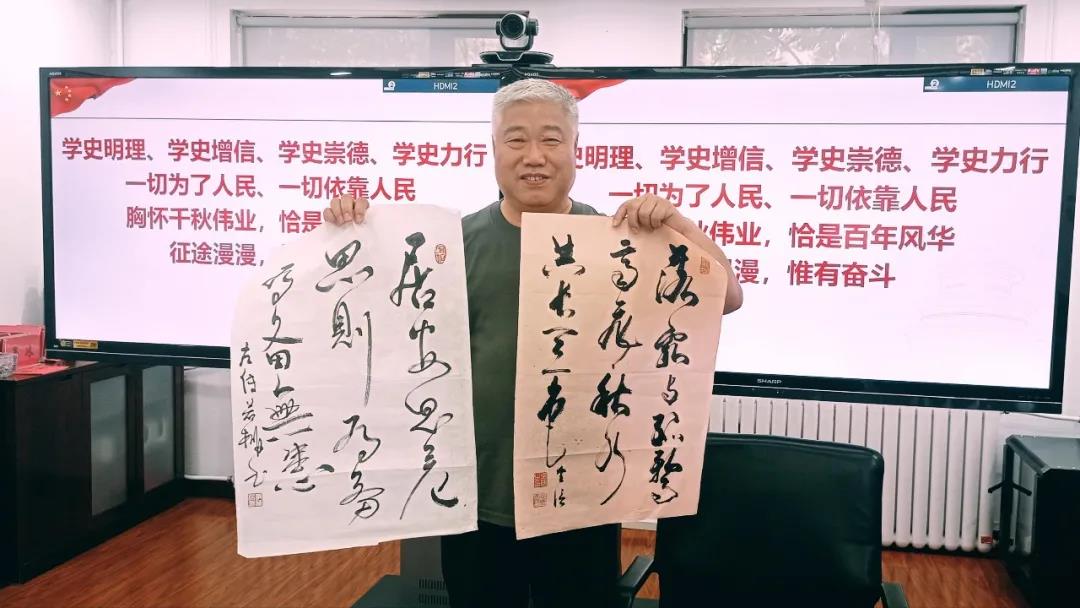 HDMI2
学史明理、学史增信、学史崇德、学史力行
一切为了人民、一切依靠人民
胸怀千秋伟业，恰是
征途漫漫，
HDMI2
史明理、学史增信、学史崇德、学史力行
一切为了人民、一切依靠人民
秋伟业，恰是百年风华
漫，惟有奋斗
SHARP
居安思危
思則有备
有备無患
落霞与孤鹜
齊飛秋水
共長天一色